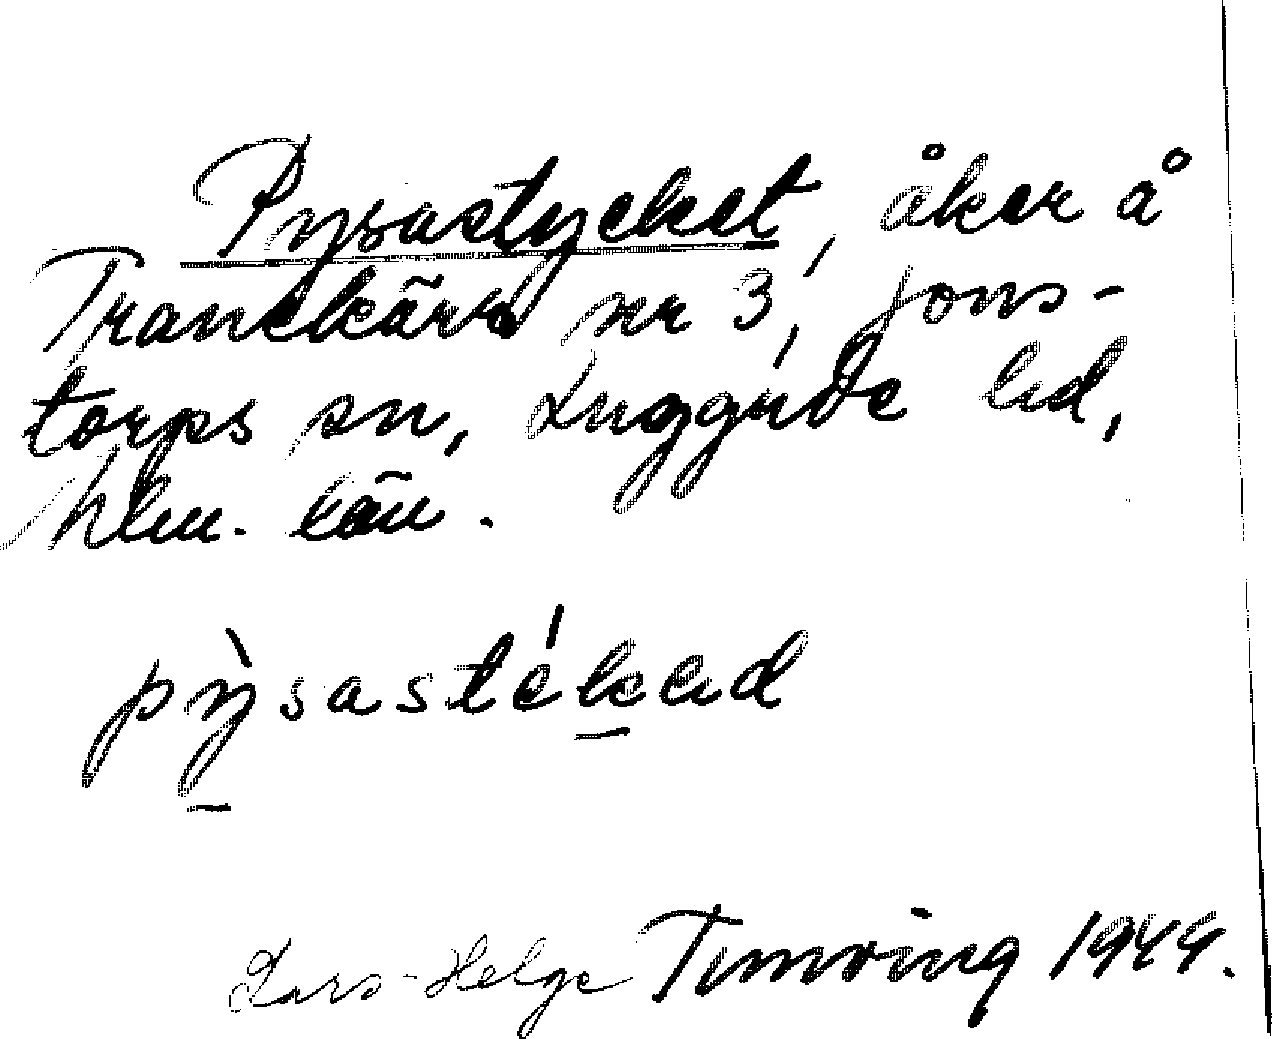 Pysastycket, åker å
Tranekärr nr 3, Jons-
torps sn, Luggude hd,
hlm. län.
pỳsastékəd
Lars-Helge Timring 1944.